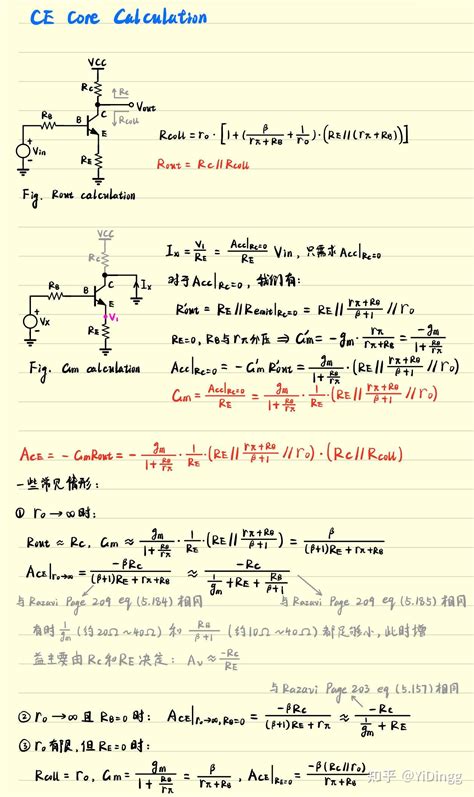 CE Core Calculation
VCC
RC
RC
Vout
Rcoll
RB
B
C
E
RE
Vin
Rcoll = ro · [1 + (β/(rπ+RB) + 1/ro) · (RE // (rπ+RB))]
Rout = RC // Rcoll
Fig. Rout calculation
VCC
RC
Ix
RB
B
C
E
V1
RE
Vx
Fig. Gm calculation
Ix = V1/RE = Acc|RC=0 / RE Vin, 只需求 Acc|RC=0
对于 Acc|RC=0, 我们有:
R'out = RE // Remit|RC=0 = RE // (rπ+RB)/(β+1) // ro
RE=0, RB与rπ分压 ⇒ G'm = -gm · rπ/(rπ+RB) = -gm/(1+RB/rπ)
Acc|RC=0 = -G'm R'out = gm/(1+RB/rπ) · (RE // (rπ+RB)/(β+1) // ro)
Gm = Acc|RC=0 / RE = gm/(1+RB/rπ) · 1/RE · (RE // (rπ+RB)/(β+1) // ro)
ACE = -Gm Rout = - gm/(1+RB/rπ) · 1/RE · (RE // (rπ+RB)/(β+1) // ro) · (RC // Rcoll)
一些常见情形:
① ro → ∞ 时:
Rout ≈ RC, Gm ≈ gm/(1+RB/rπ) · 1/RE · (RE // (rπ+RB)/(β+1)) = β/((β+1)RE+rπ+RB)
ACE|ro→∞ = -βRC/((β+1)RE+rπ+RB) ≈ -RC/(1/gm+RE+RB/(β+1))
与 Razavi Page 209 eq (5.184) 相同
与 Razavi Page 209 eq (5.185) 相同
有时 1/gm (约20Ω~40Ω) 和 RB/(β+1) (约10Ω~40Ω) 都足够小, 此时增
益主要由 RC 和 RE 决定: Av ≈ -RC/RE
与 Razavi Page 203 eq (5.157) 相同
② ro → ∞ 且 RB=0 时: ACE|ro→∞, RB=0 = -βRC/((β+1)RE+rπ) ≈ -RC/(1/gm+RE)
③ ro 有限, 但 RE=0 时:
Rcoll = ro, Gm = gm/(1+RB/rπ) = β/(rπ+RB), ACE|RE=0 = -β(RC//ro)/(rπ+RB)
知乎 @YiDingg